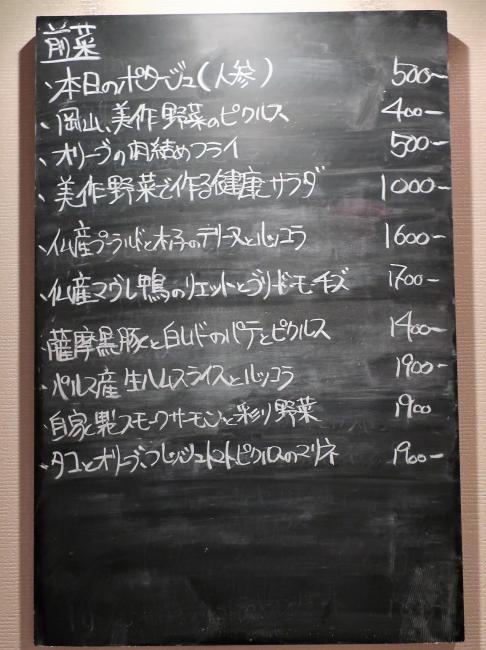 前菜
・本日のポタージュ(人参) 500-
・岡山、美作野菜のピクルス 400-
・オリーブの肉詰めフライ 500-
・美作野菜で作る健康サラダ 1000-
・仏産プーラルドと木の子のテリーヌとルッコラ 1600-
・仏産マグレ鴨のリエットとブリ・ド・モーチーズ 1700-
・薩摩黒豚と白レバーのパテとピクルス 1400-
・パルマ産生ハムスライスとルッコラ 1900-
・自家製スモークサーモンと彩り野菜 1900
・タコとオリーブ、フレッシュトマトピクルスのマリネ 1900-